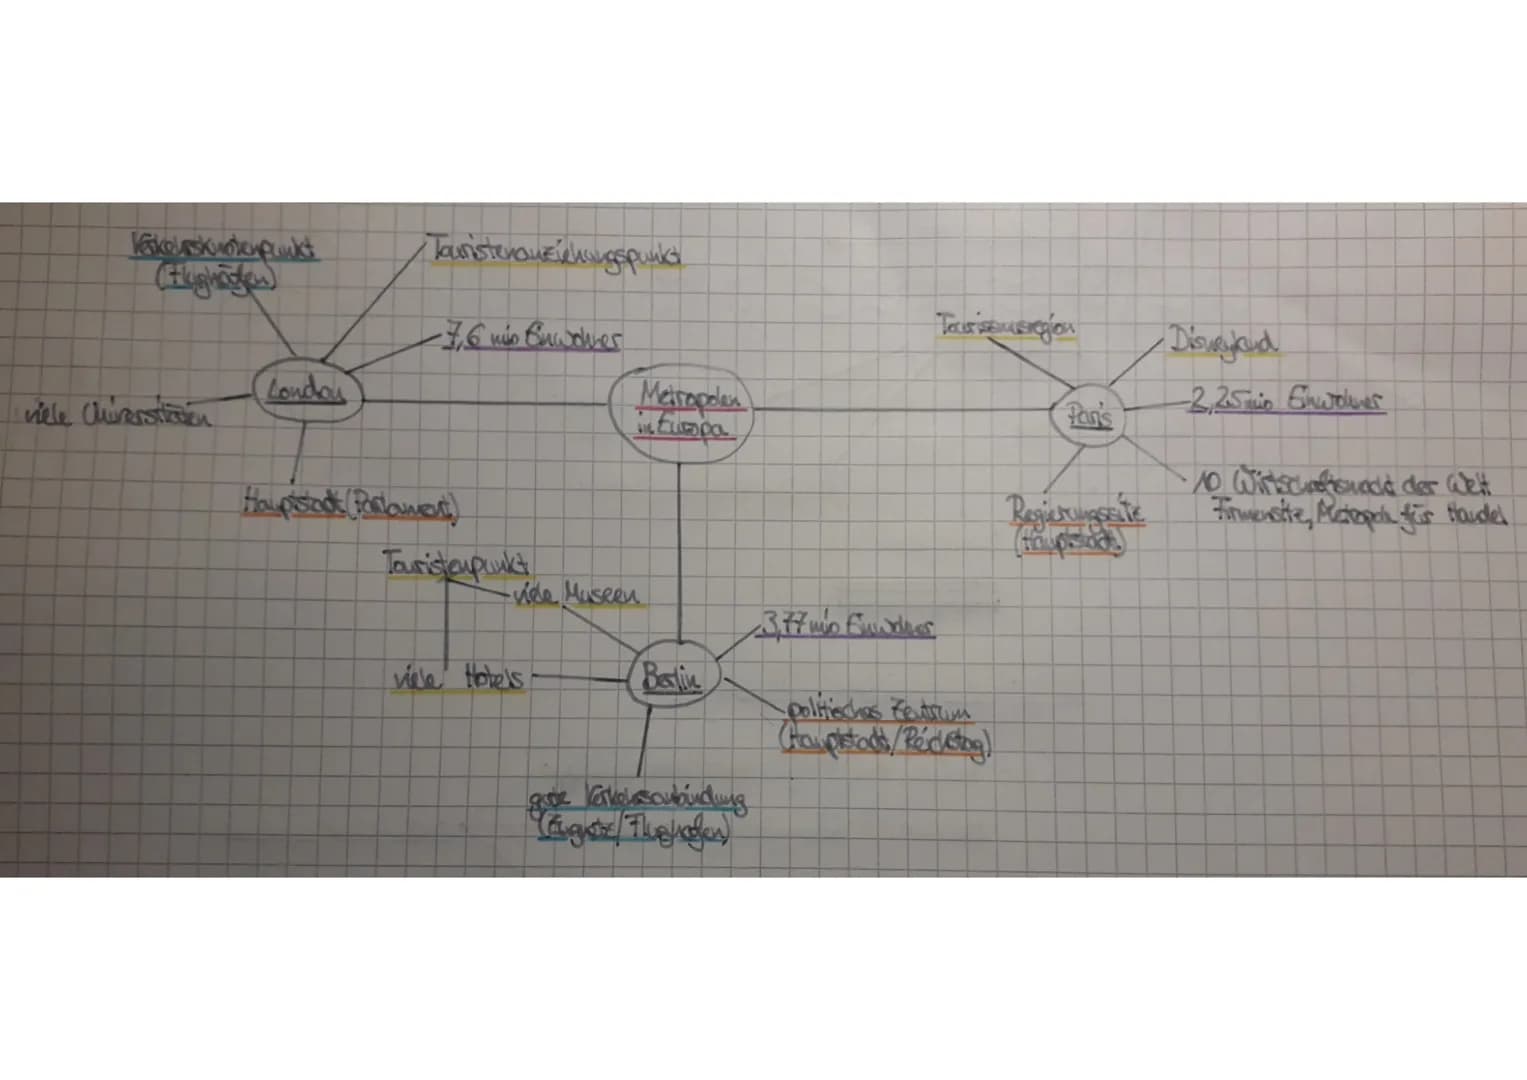 Verkehrsknotenpunkt
(Flughäfen)
Touristenanziehungspunkt
7,6 mio Einwohner
London
viele Universitäten
Hauptstadt (Parlament)
Metropolen
in Europa
Tourismusregion
Disneyland
2,25 mio Einwohner
Paris
10 Wirtschaftsmacht der Welt
Firmensitze, Metropole für Handel
Regierungssitz
(Hauptstadt)
Touristenpunkt
viele Museen
viele Hotels
Berlin
3,77 mio Einwohner
politisches Zentrum
(Hauptstadt/Reichstag)
gute Verkehrsanbindung
Flughafen)